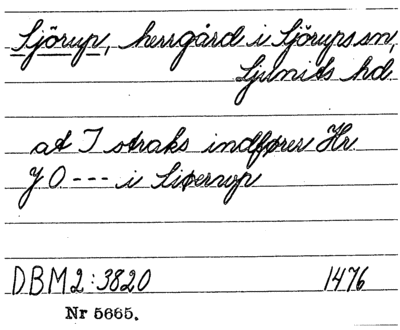 Sjörup, herrgård i Sjörups sn,
Ljunits hd
at I straks indfører Hr
J O --- i Siøerup
DBM2:3820 1476
Nr 5665.